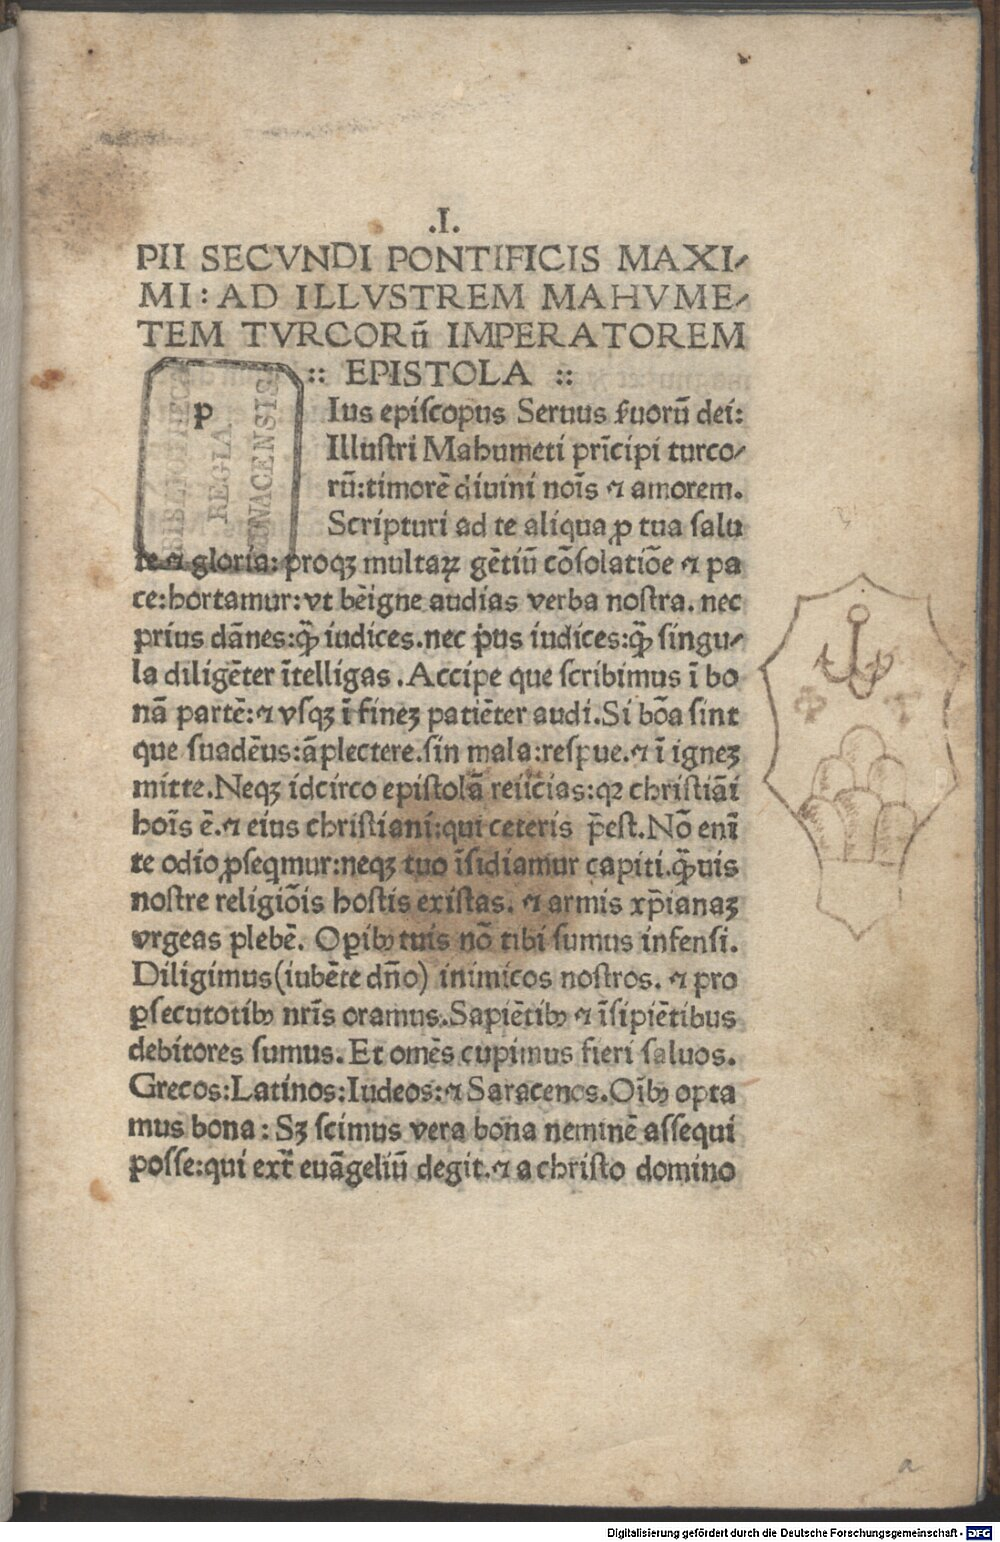 .I.
PII SECVNDI PONTIFICIS MAXI-
MI: AD ILLVSTREM MAHVME-
TEM TVRCORū IMPERATOREM
:: EPISTOLA ::
p Ius episcopus Seruus ẜuorū dei:
Illustri Mahumeti prīcipi turco-
rū:timorē diuini noīs ⁊ amorem.
Scripturi ad te aliqua ꝓ tua salu
te ⁊ gloria: proqꝫ multaꝝ gētiū cōsolatiōe ⁊ pa
ce:hortamur:vt bēigne audias verba nostra. nec
prius dānes:qꝫ̄ iudices.nec p̍us iudices:qꝫ̄ singu-
la diligēter ītelligas.Accipe que scribimus ī bo
nā partē:⁊ vsqꝫ ī fineꝫ patiēter audi.Si bōa sint
que suadēus:āplectere.sin mala:respue.⁊ ī igneꝫ
mitte.Neqꝫ idcirco epistolā reiicias:qꝛ christiāi
hoīs ē.⁊ eius christiani:qui ceteris p̄est.Nō enī
te odio ꝓseqmur:neqꝫ tuo īsidiamur capiti.qꝫ̄uis
nostre religiōis hostis existas. ⁊ armis xp̄ianaꝫ
vrgeas plebē. Oꝑibꝫ tuis nō tibi sumus infensi.
Diligimus(iubēte dn̄o) inimicos nostros. ⁊ pro
ꝑsecutotibꝫ nr̄is oramus.Sapiētibꝫ ⁊ īsipiētibus
debitores sumus. Et omēs cupimus fieri saluos.
Grecos:Latinos:Iudeos:⁊ Saracenos.Oībꝫ opta
mus bona: Sꝫ scimus vera bona neminē assequi
posse:qui ext̄ euāgeliū degit.⁊ a christo domino
BIBLIOTHECA
REGIA
MONACENSIS
a
Digitalisierung gefördert durch die Deutsche Forschungsgemeinschaft - DFG